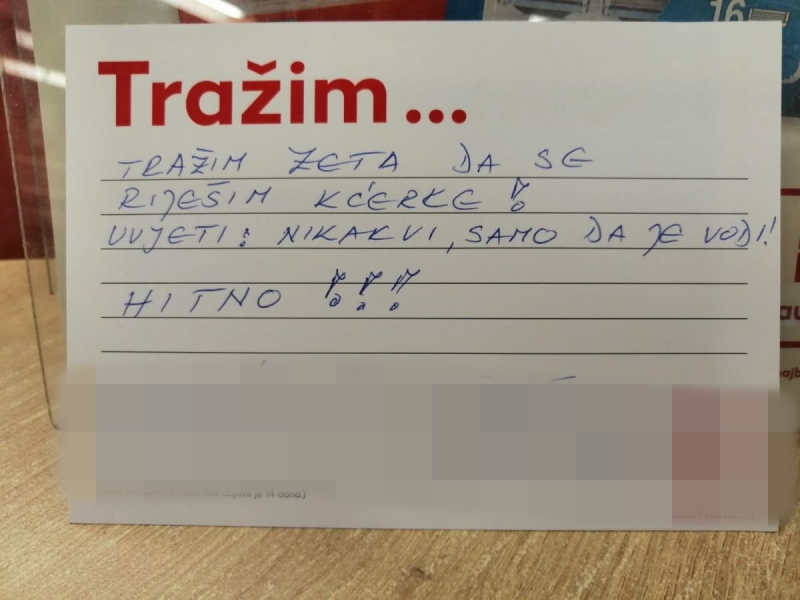 16
Tražim...
TRAŽIM ZETA DA SE
RIJEŠIM KĆERKE!
UVJETI: NIKAKVI, SAMO DA JE VODI!
HITNO !!!
objave je 14 dana.)